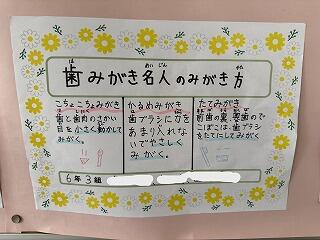 歯みがき名人のみがき方
こちょこちょみがき
歯と歯肉のさかい
目を小さく動かして
みがく。
かるめみがき
歯ブラシに力を
あまり入れな
いでやさしく
みがく。
たてみがき
前歯の裏、奥歯ので
こぼこは、歯ブラシ
をたてにしてみがく
6年3組